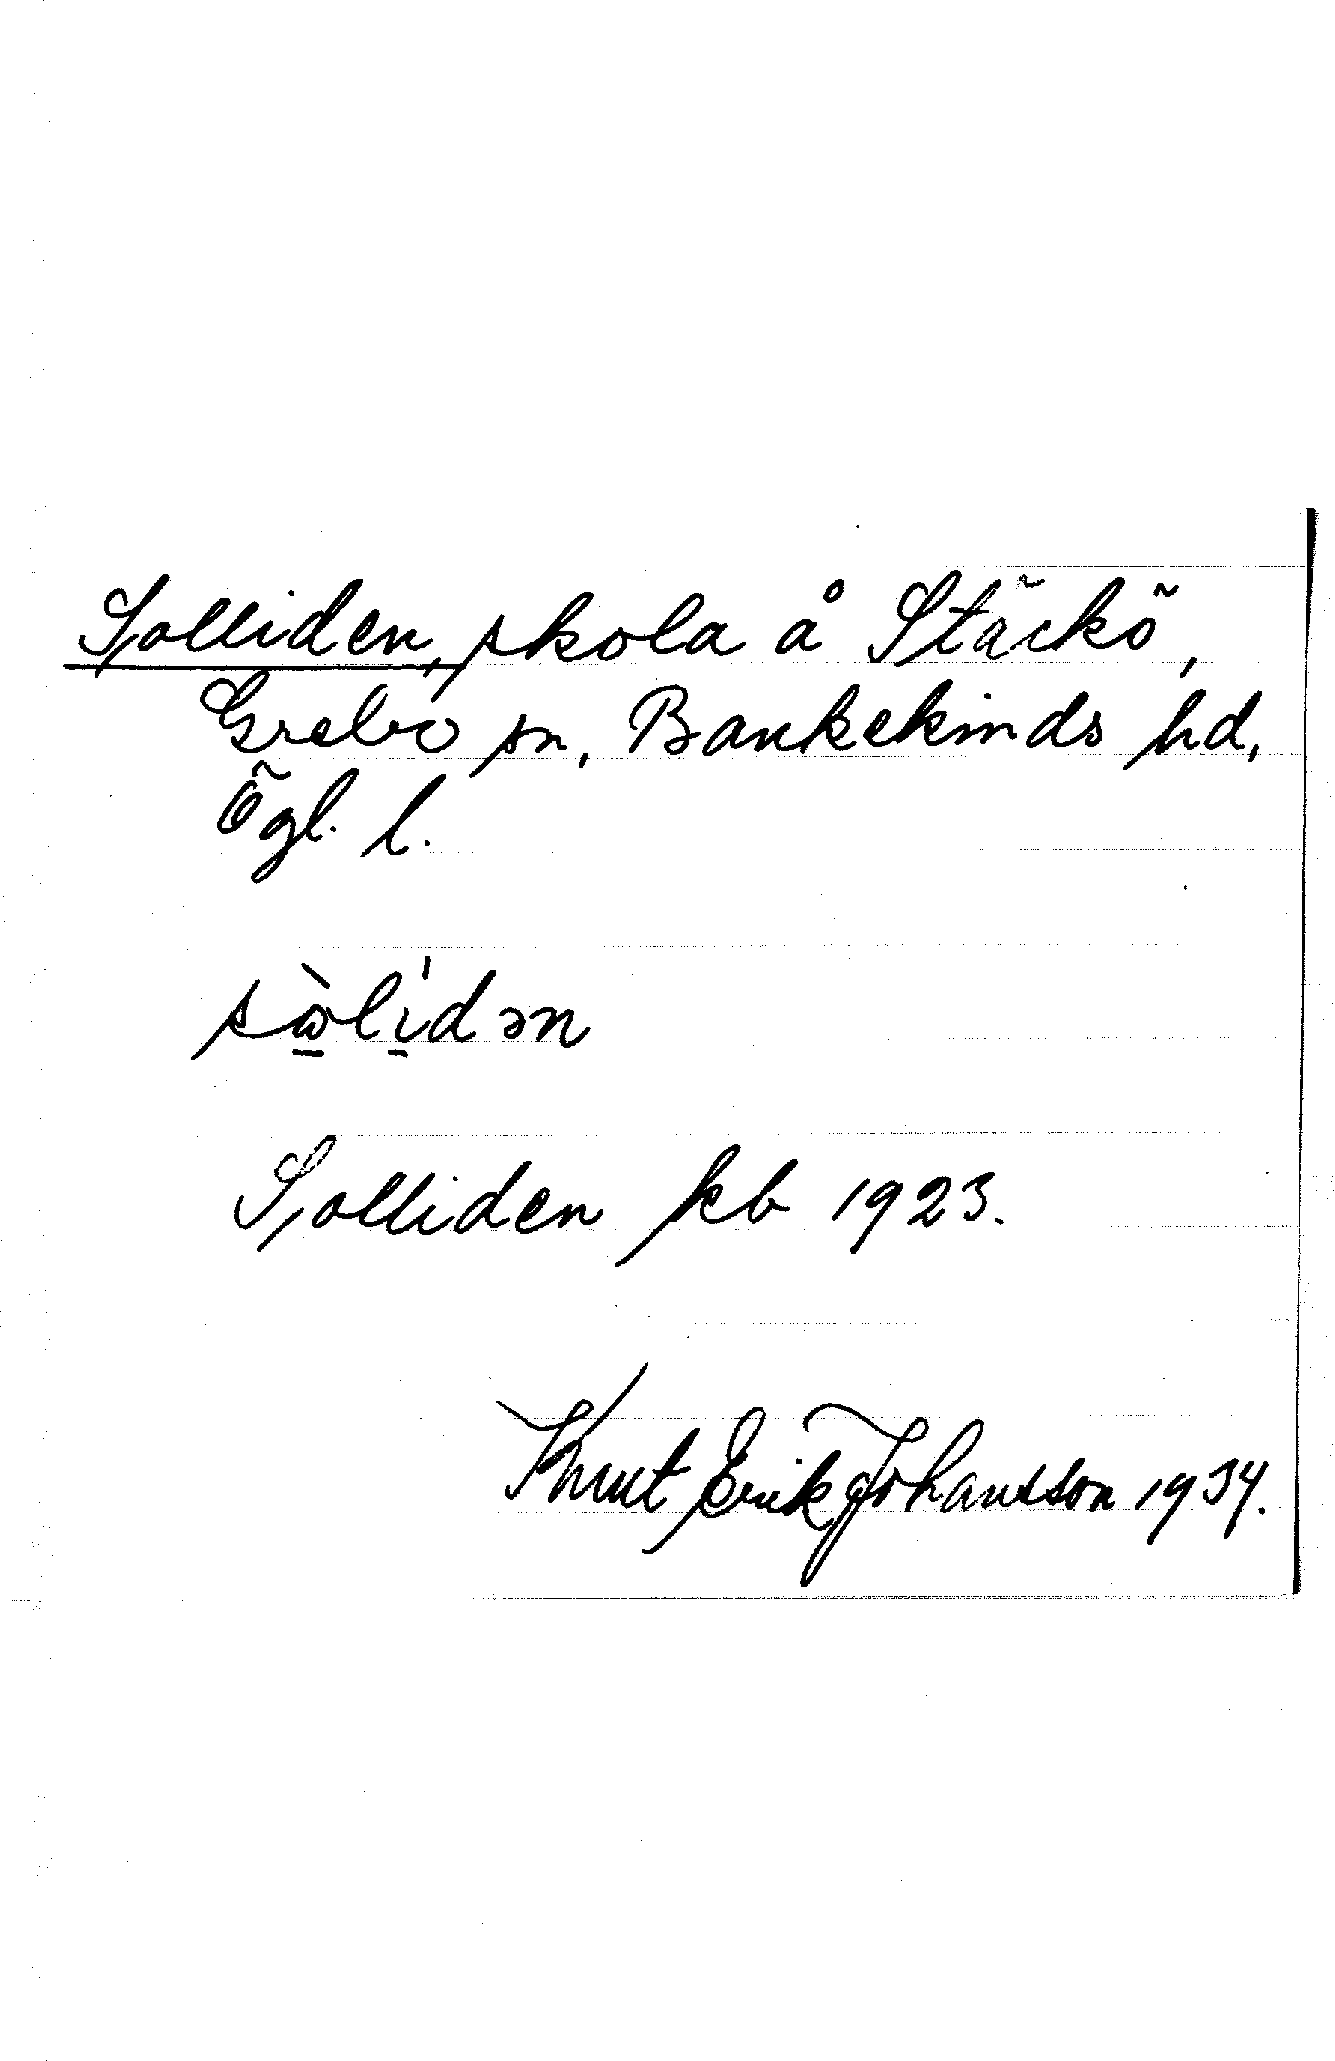 Solliden, skola å Stäckö,
Grebo sn, Bankekinds hd,
Ögl. l.
sὼ̠li̠̍dən
Solliden kb 1923.
Knut Erik Johansson 1934.